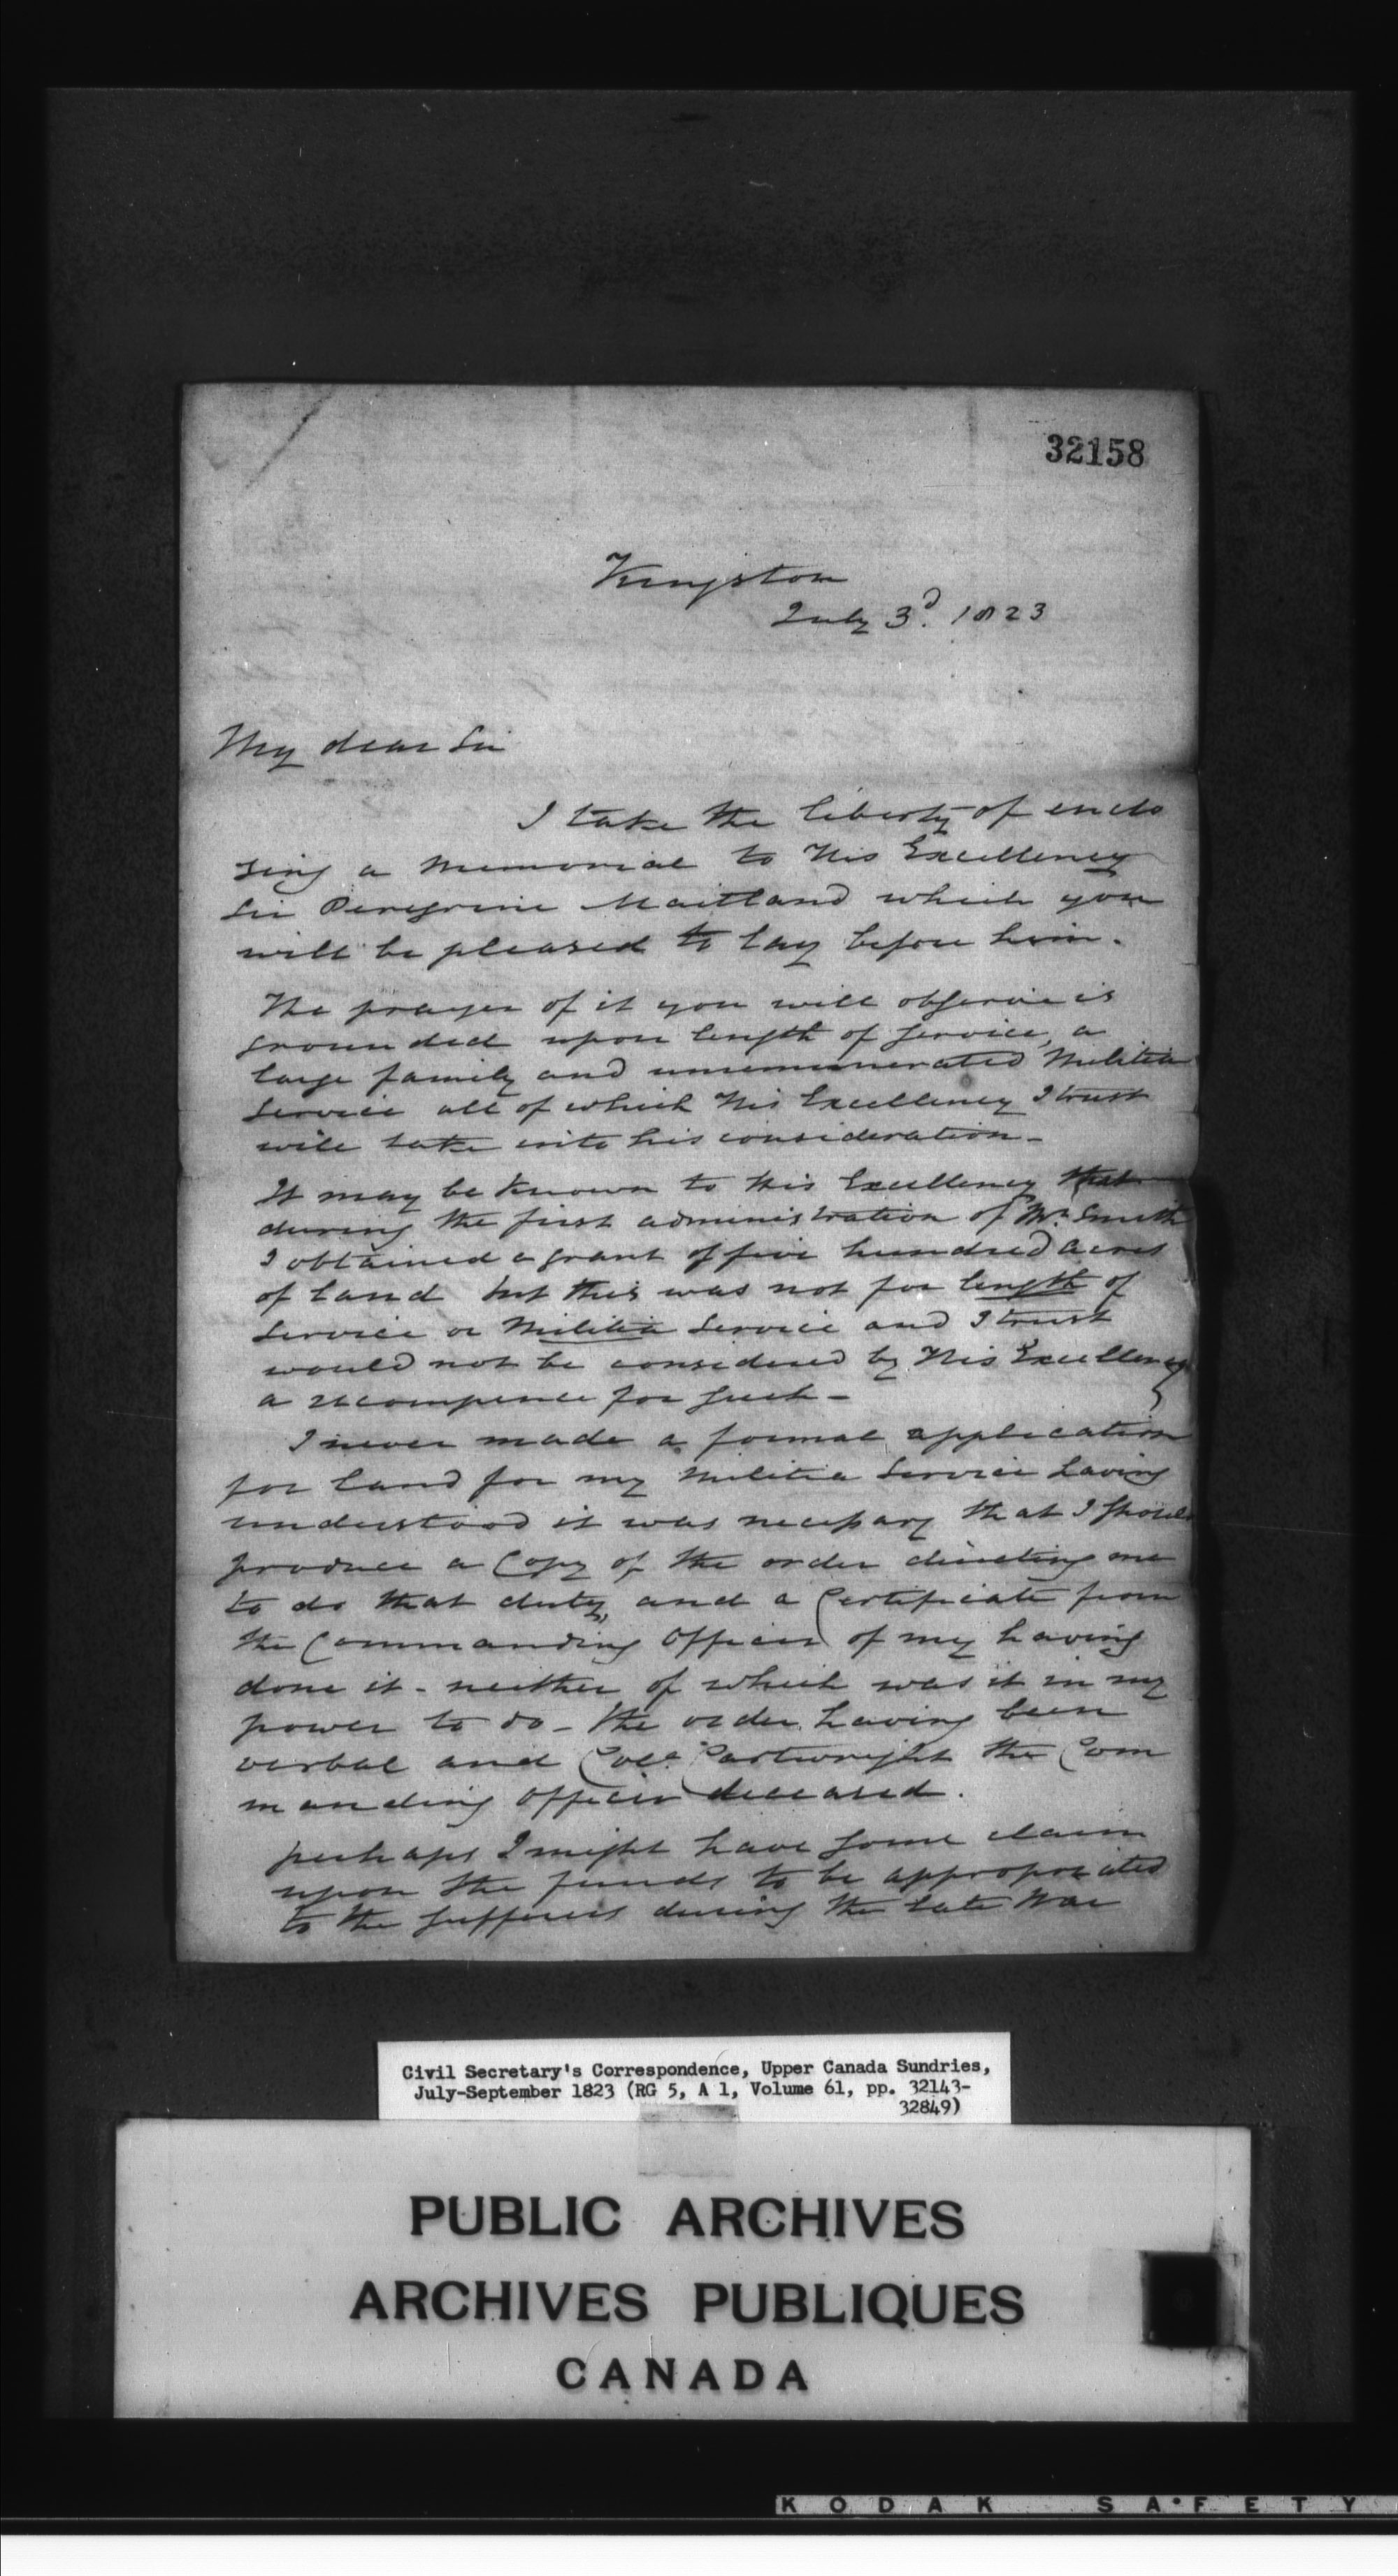 32158
Kingston
July 3d. 1823
My dear Sir
I take the liberty of enclo
sing a Memorial to His Excellency
Sir Peregrine Maitland which you
will be pleased to lay before him.
The prayer of it you will observe is
grounded upon length of service, a
large family and unremunerated Militia
Service all of which His Excellency I trust
will take into his consideration -
It may be known to His Excellency that
during the first administration of Mr. Smith
I obtained a grant of five hundred acres
of land but this was not for length of
Service or Militia Service and I trust
would not be considered by His Excellency
a recompence for such -
I never made a formal application
for land for my Militia Service having
understood it was necessary that I should
produce a Copy of the order directing me
to do that duty, and a Certificate from
the Commanding Officer of my having
done it - neither of which was it in my
power to do - the order having been
verbal and Coll. Cartwright the Com
manding Officer deceased.
perhaps I might have some claim
upon the funds to be appropriated
to the sufferers during the late War
Civil Secretary's Correspondence, Upper Canada Sundries,
July-September 1823 (RG 5, A 1, Volume 61, pp. 32143-
32849)
PUBLIC ARCHIVES
ARCHIVES PUBLIQUES
CANADA
KODAK SAFETY